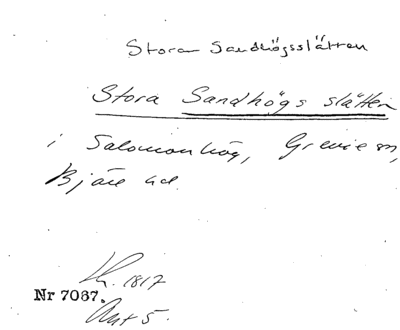 Stora Sandhögsslätten
Stora Sandhögs slätten
i Salomonhög, Grevie sn,
Bjäre hd.
Kr. 1817
Nr 7087.
Ant 5.